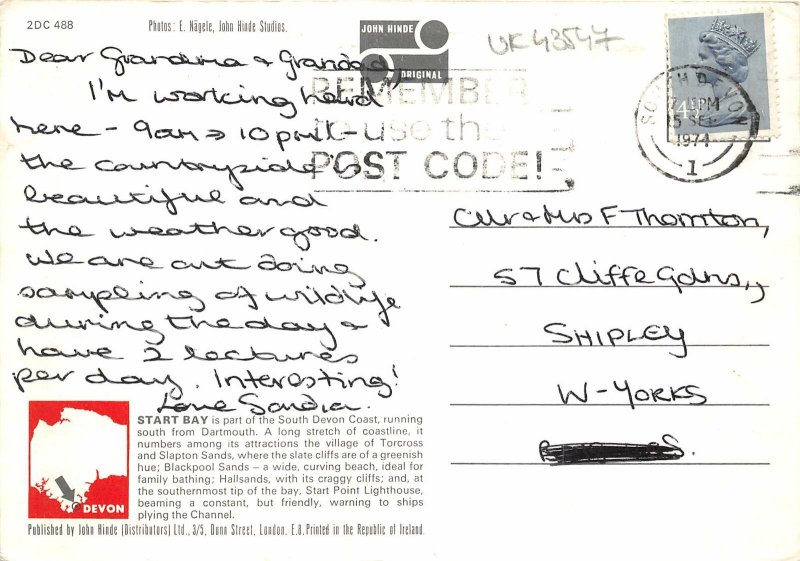 2DC 488
Photos: E. Nägele, John Hinde Studios.
JOHN HINDE
ORIGINAL
UK43547
Dear Grandma & Grandad,
I'm working hard
here - 9am → 10pm! -
the countryside is
beautiful and
the weather good.
We are out doing
sampling of wildlife
during the day &
have 2 lectures
per day. Interesting!
Love Sandra.
REMEMBER
to use the
POST CODE!
SOUTH DEVON
PM
15 SEP
1974
1
4½P
Mr & Mrs F Thornton,
57 Cliffe Gdns.,
SHIPLEY
W-YORKS
S.
START BAY is part of the South Devon Coast, running
south from Dartmouth. A long stretch of coastline, it
numbers among its attractions the village of Torcross
and Slapton Sands, where the slate cliffs are of a greenish
hue; Blackpool Sands – a wide, curving beach, ideal for
family bathing; Hallsands, with its craggy cliffs; and, at
the southernmost tip of the bay, Start Point Lighthouse,
beaming a constant, but friendly, warning to ships
plying the Channel.
DEVON
Published by John Hinde (Distributors) Ltd., 3/5, Dunn Street, London. E.8. Printed in the Republic of Ireland.